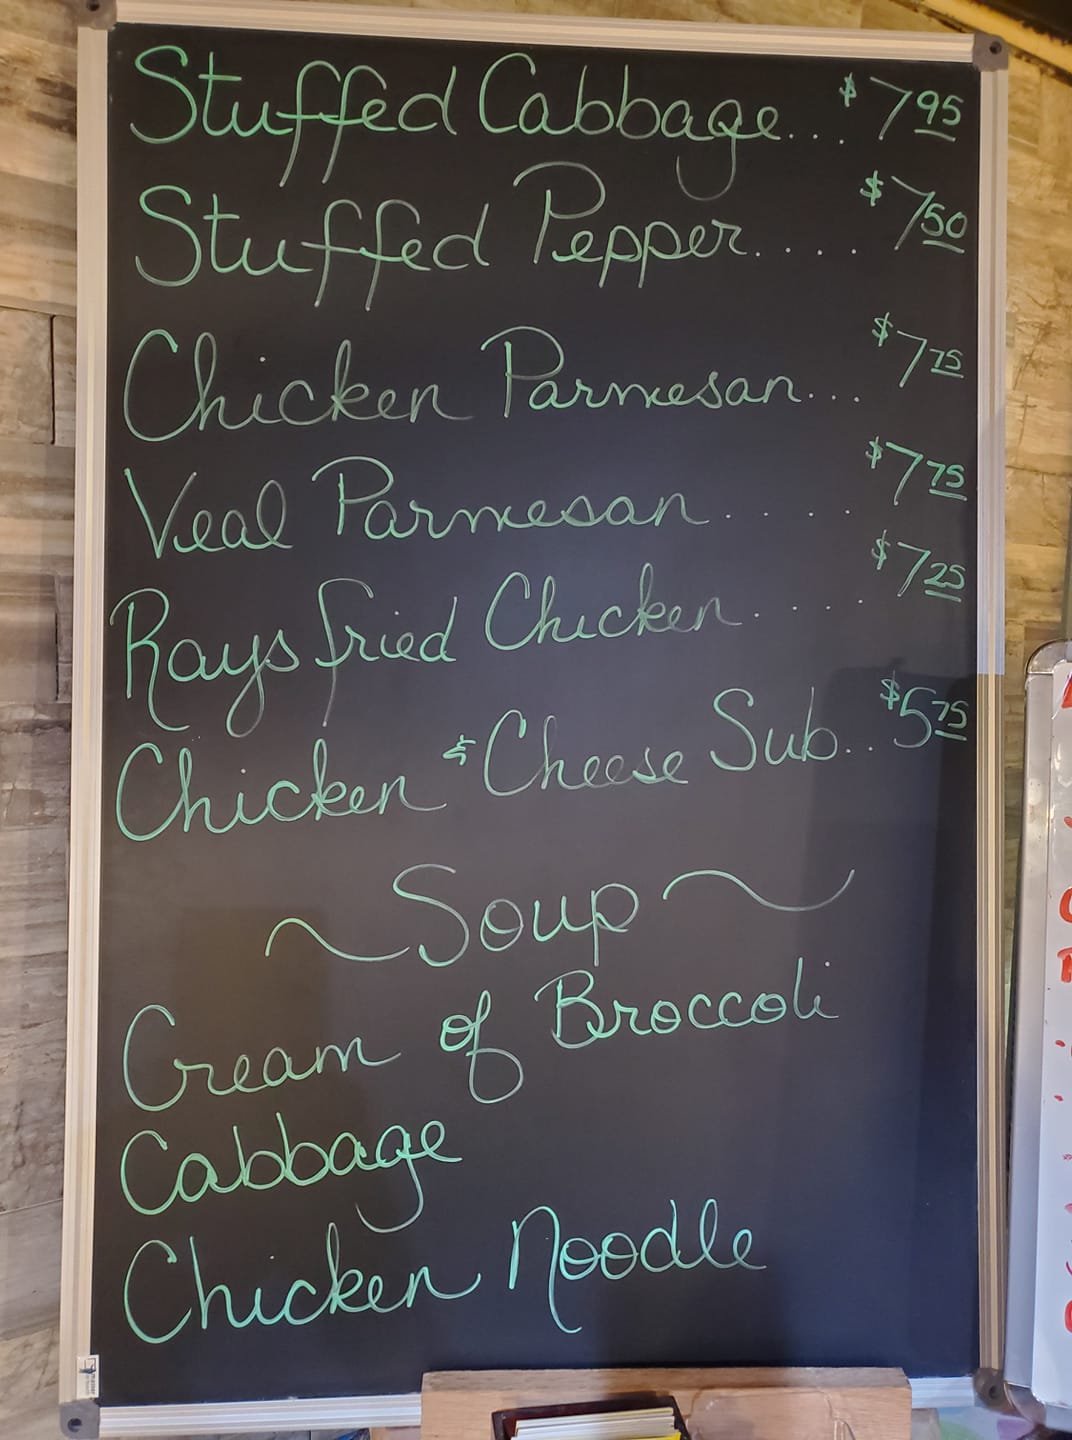 Stuffed Cabbage... $7 95
Stuffed Pepper.... $7 50
Chicken Parmesan... $7 75
Veal Parmesan..... $7 75
Rays fried Chicken..... $7 25
Chicken & Cheese Sub... $5 75
~Soup~
Cream of Broccoli
Cabbage
Chicken Noodle